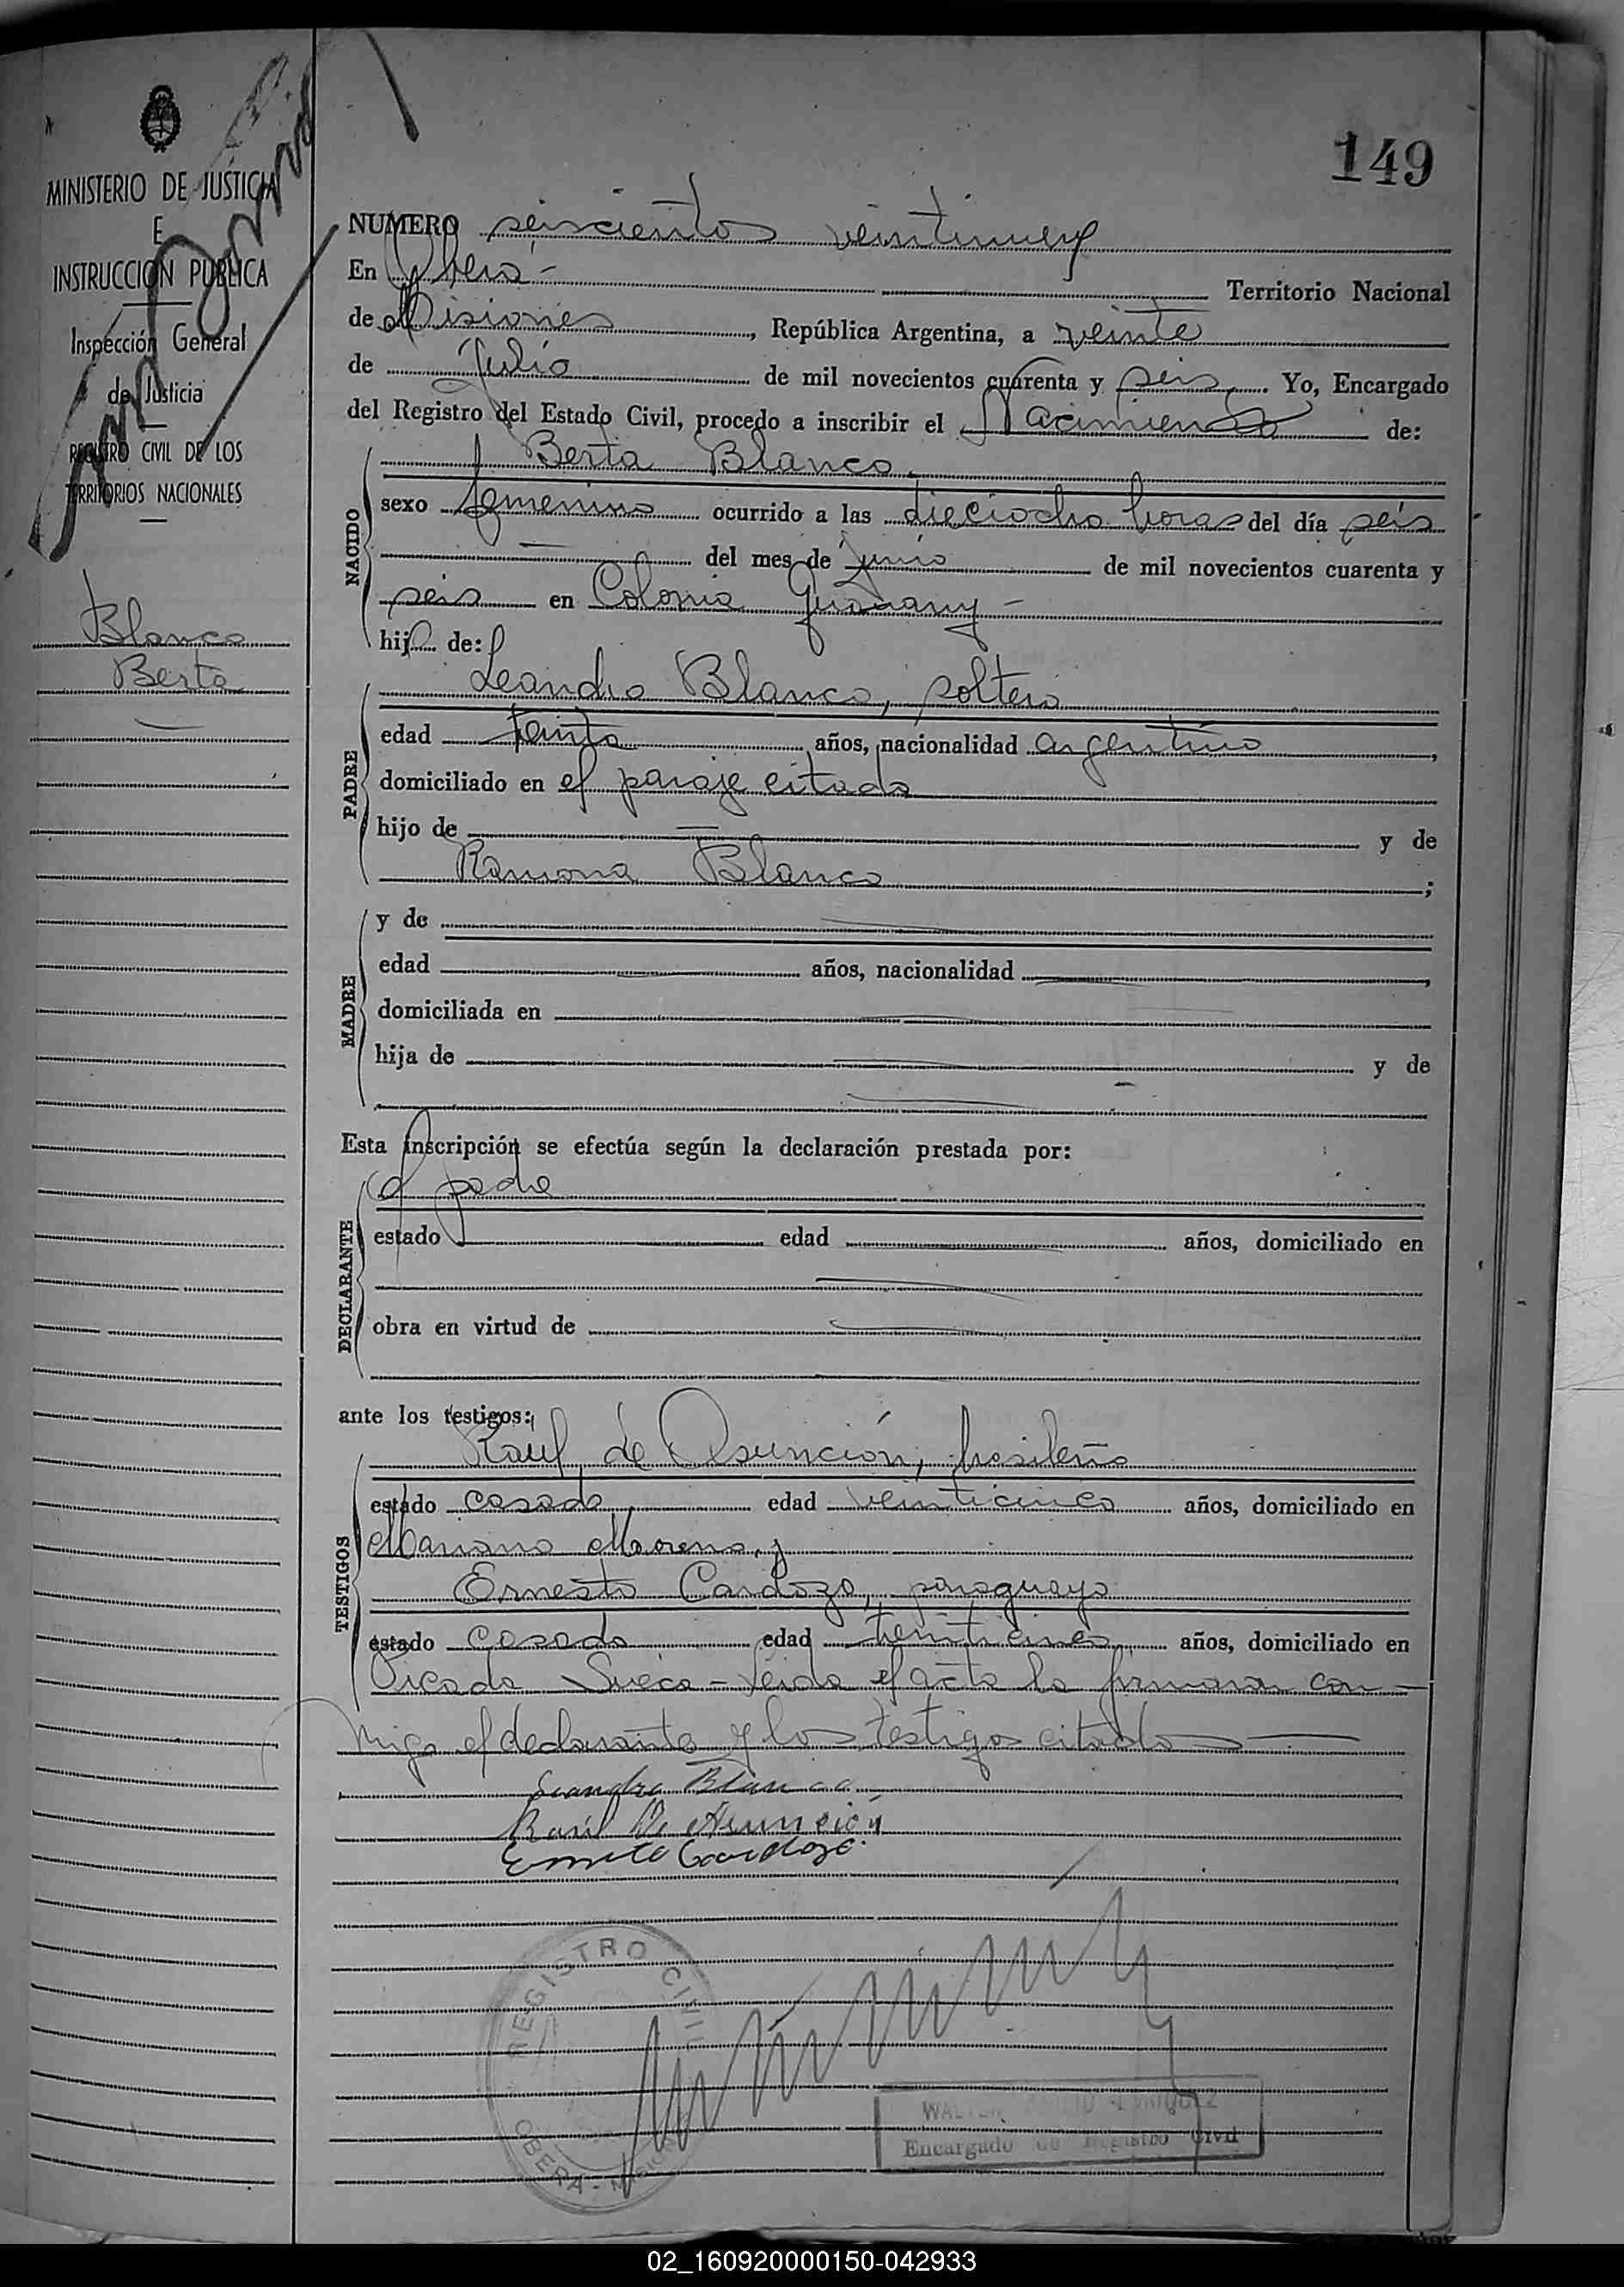 149
MINISTERIO DE JUSTICIA
E
INSTRUCCIÓN PÚBLICA
Inspección General
de Justicia
REGISTRO CIVIL DE LOS
TERRITORIOS NACIONALES
Blanco
Berta
NUMERO seiscientos veintinueve
En Oberá - Territorio Nacional
de Misiones, República Argentina, a veinte
de Julio de mil novecientos cuarenta y seis. Yo, Encargado
del Registro del Estado Civil, procedo a inscribir el Nacimiento de:
NACIDO
Berta Blanco.
sexo femenino ocurrido a las dieciocho horas del día seis
— del mes de junio de mil novecientos cuarenta y
seis en Colonia Guarany -
hija de:
PADRE
Leandro Blanco, soltero
edad treinta años, nacionalidad argentino,
domiciliado en el paraje citado
hijo de — y de
Ramona Blanco;
MADRE
y de
edad años, nacionalidad
domiciliada en
hija de y de
Esta inscripción se efectúa según la declaración prestada por:
DECLARANTE
el padre
estado edad años, domiciliado en
obra en virtud de
ante los testigos:
TESTIGOS
Raúl de Asunción, brasileño
estado casado, edad veinticinco años, domiciliado en
Mariano Moreno, y
Ernesto Cardozo, paraguayo
estado casado edad treinticinco, años, domiciliado en
Picada Sueca - Leida el acta la firmaron con-
migo el declarante y los testigos citados —
Leandro Blanco
Raúl De Asunción
Ernesto Cardozo.
REGISTRO CIVIL
OBERA -
WALTER
Encargado de Registro Civil
02_160920000150-042933